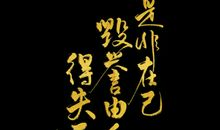 是非在己
毁誉由
得失